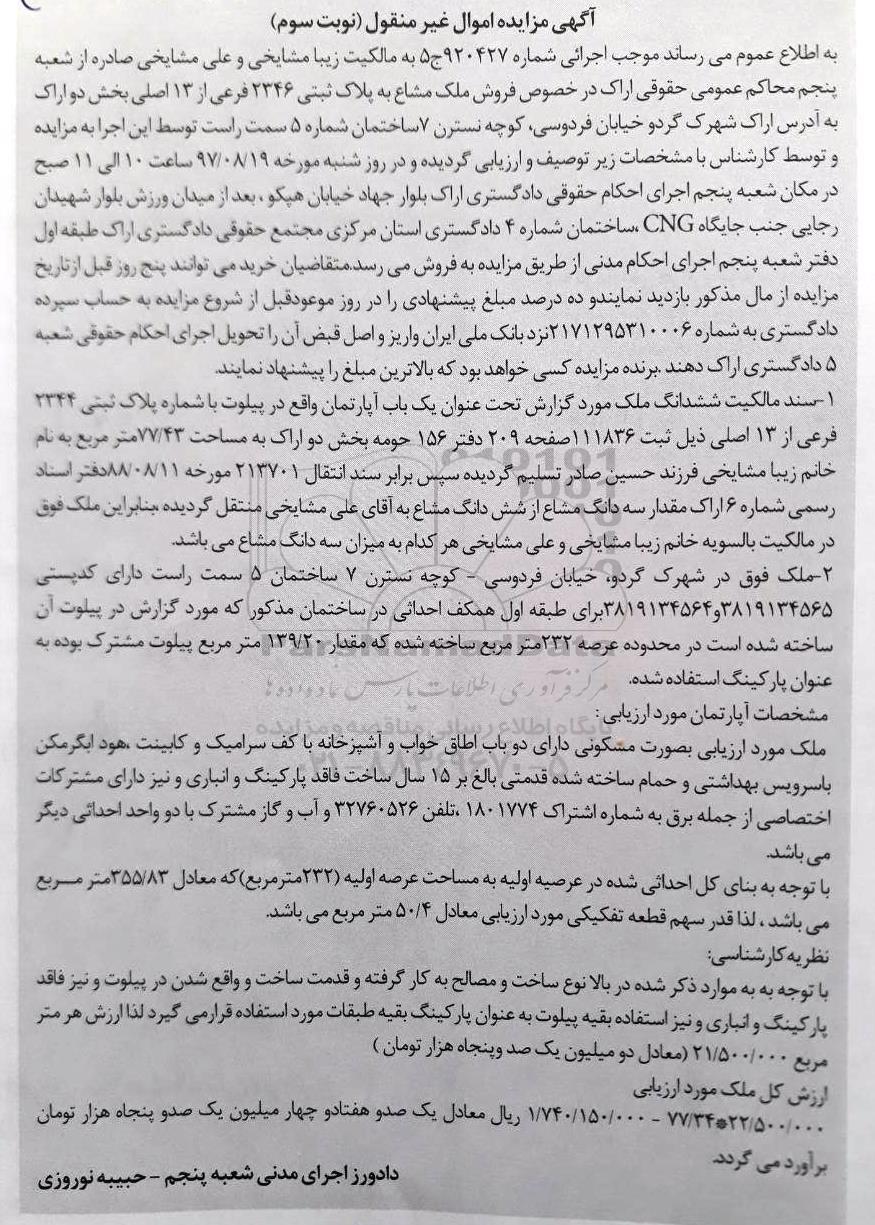 آگهی مزایده اموال غیر منقول (نوبت سوم)
به اطلاع عموم می رساند موجب اجرائی شماره ۹۲۰۴۲۷ج۵ به مالکیت زیبا مشایخی و علی مشایخی صادره از شعبه
پنجم محاکم عمومی حقوقی اراک در خصوص فروش ملک مشاع به پلاک ثبتی ۲۳۴۶ فرعی از ۱۳ اصلی بخش دو اراک
به آدرس اراک شهرک گردو خیابان فردوسی، کوچه نسترن ۷ساختمان شماره ۵ سمت راست توسط این اجرا به مزایده
و توسط کارشناس با مشخصات زیر توصیف و ارزیابی گردیده و در روز شنبه مورخه ۹۷/۰۸/۱۹ ساعت ۱۰ الی ۱۱ صبح
در مکان شعبه پنجم اجرای احکام حقوقی دادگستری اراک بلوار جهاد خیابان هپکو ، بعد از میدان ورزش بلوار شهیدان
رجایی جنب جایگاه CNG ،ساختمان شماره ۴ دادگستری استان مرکزی مجتمع حقوقی دادگستری اراک طبقه اول
دفتر شعبه پنجم اجرای احکام مدنی از طریق مزایده به فروش می رسد.متقاضیان خرید می توانند پنج روز قبل ازتاریخ
مزایده از مال مذکور بازدید نمایندو ده درصد مبلغ پیشنهادی را در روز موعودقبل از شروع مزایده به حساب سپرده
دادگستری به شماره ۲۱۷۱۲۹۵۳۱۰۰۰۶نزد بانک ملی ایران واریز و اصل قبض آن را تحویل اجرای احکام حقوقی شعبه
۵ دادگستری اراک دهند .برنده مزایده کسی خواهد بود که بالاترین مبلغ را پیشنهاد نمایند.
۱-سند مالکیت ششدانگ ملک مورد گزارش تحت عنوان یک باب آپارتمان واقع در پیلوت با شماره پلاک ثبتی ۲۳۴۴
فرعی از ۱۳ اصلی ذیل ثبت ۱۱۱۸۳۶صفحه ۲۰۹ دفتر ۱۵۶ حومه بخش دو اراک به مساحت ۷۷/۴۳متر مربع به نام
خانم زیبا مشایخی فرزند حسین صادر تسلیم گردیده سپس برابر سند انتقال ۲۱۳۷۰۱ مورخه ۸۸/۰۸/۱۱دفتر اسناد
رسمی شماره ۶ اراک مقدار سه دانگ مشاع از شش دانگ مشاع به آقای علی مشایخی منتقل گردیده ،بنابراین ملک فوق
در مالکیت بالسویه خانم زیبا مشایخی و علی مشایخی هر کدام به میزان سه دانگ مشاع می باشد.
۲-ملک فوق در شهرک گردو، خیابان فردوسی - کوچه نسترن ۷ ساختمان ۵ سمت راست دارای کدپستی
۳۸۱۹۱۳۴۵۶۵و۳۸۱۹۱۳۴۵۶۴برای طبقه اول همکف احداثی در ساختمان مذکور که مورد گزارش در پیلوت آن
ساخته شده است در محدوده عرصه ۲۳۲متر مربع ساخته شده که مقدار ۱۳۹/۲۰ متر مربع پیلوت مشترک بوده به
عنوان پارکینگ استفاده شده.
مشخصات آپارتمان مورد ارزیابی :
ملک مورد ارزیابی بصورت مسکونی دارای دو باب اطاق خواب و آشپزخانه با کف سرامیک و کابینت ،هود ابگرمکن
باسرویس بهداشتی و حمام ساخته شده قدمتی بالغ بر ۱۵ سال ساخت فاقد پارکینگ و انباری و نیز دارای مشترکات
اختصاصی از جمله برق به شماره اشتراک ۱۸۰۱۷۷۴ ،تلفن ۳۲۷۶۰۵۲۶ و آب و گاز مشترک با دو واحد احداثی دیگر
می باشد.
با توجه به بنای کل احداثی شده در عرصیه اولیه به مساحت عرصه اولیه (۲۳۲مترمربع)که معادل ۳۵۵/۸۳متر مـــربع
می باشد ، لذا قدر سهم قطعه تفکیکی مورد ارزیابی معادل ۵۰/۴ متر مربع می باشد.
نظریه کارشناسی:
با توجه به به موارد ذکر شده در بالا نوع ساخت و مصالح به کار گرفته و قدمت ساخت و واقع شدن در پیلوت و نیز فاقد
پارکینگ و انباری و نیز استفاده بقیه پیلوت به عنوان پارکینگ بقیه طبقات مورد استفاده قرارمی گیرد لذا ارزش هر متر
مربع ۲۱/۵۰۰/۰۰۰ (معادل دو میلیون یک صد وپنجاه هزار تومان )
ارزش کل ملک مورد ارزیابی
۲۲/۵۰۰/۰۰۰*۷۷/۳۴ - ۱/۷۴۰/۱۵۰/۰۰۰ ریال معادل یک صدو هفتادو چهار میلیون یک صدو پنجاه هزار تومان
برآورد می گردد.
دادورز اجرای مدنی شعبه پنجم - حبیبه نوروزی
ParsNamadData
مرکز فرآوری اطلاعات پارس نماد داده ها
پایگاه اطلاع رسانی مناقصه و مزایده